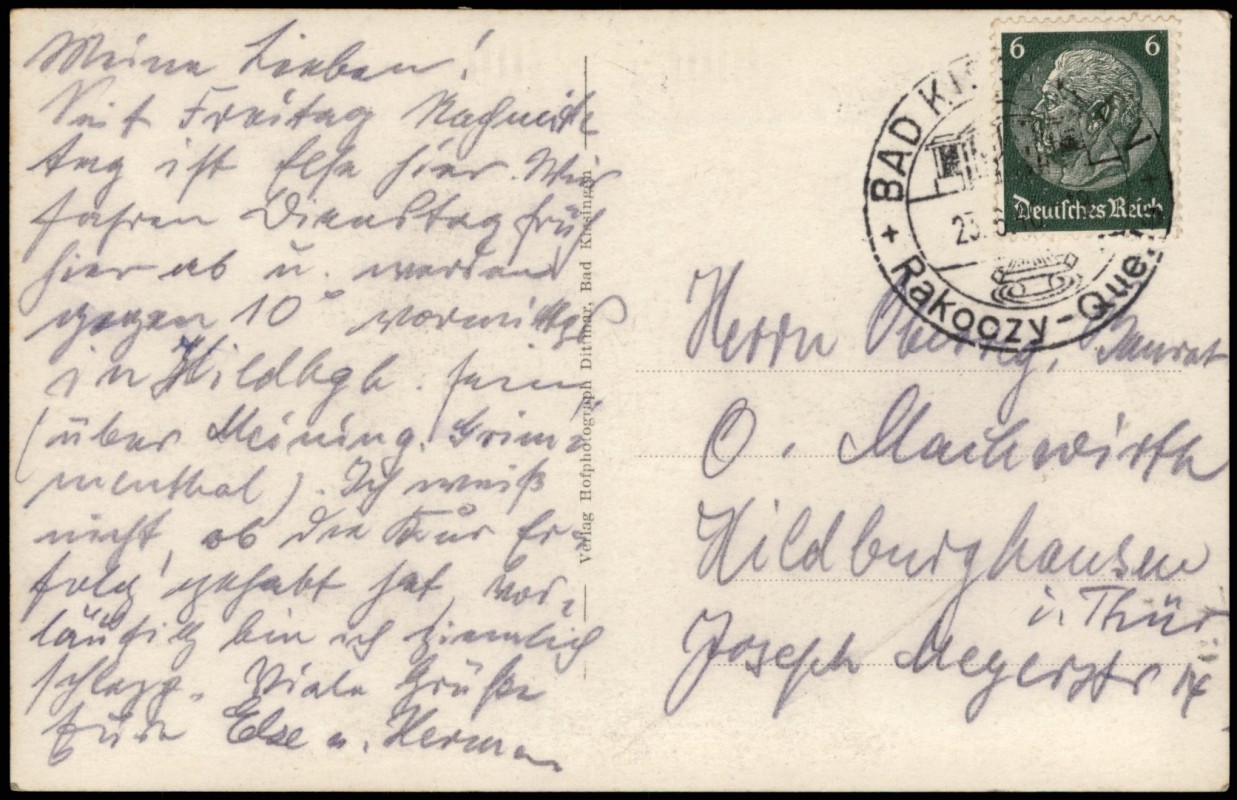 Meine Lieben!
Seit Freitag Nachmit-
tag ist Else hier. Wir
fahren Dienstag früh
hier ab u. werden
gegen 10 vormittgs
in Hildbgh. sein
(über Meining. Grim-
menthal). Ich weiß
nicht, ob die Kur Er-
folg gehabt hat, vor-
läufig bin ich ziemlich
schlapp. Viele Grüße
Eure Else u. Herman
Verlag Hofphotograph Dittmar, Bad Kissingen
6 6
Deutsches Reich
+ BAD KI
Rakoczy-Que
Herrn Oberreg. Baurat
O. Machwirth
Hildburghausen
i. Thür.
Joseph Meyerstr 14